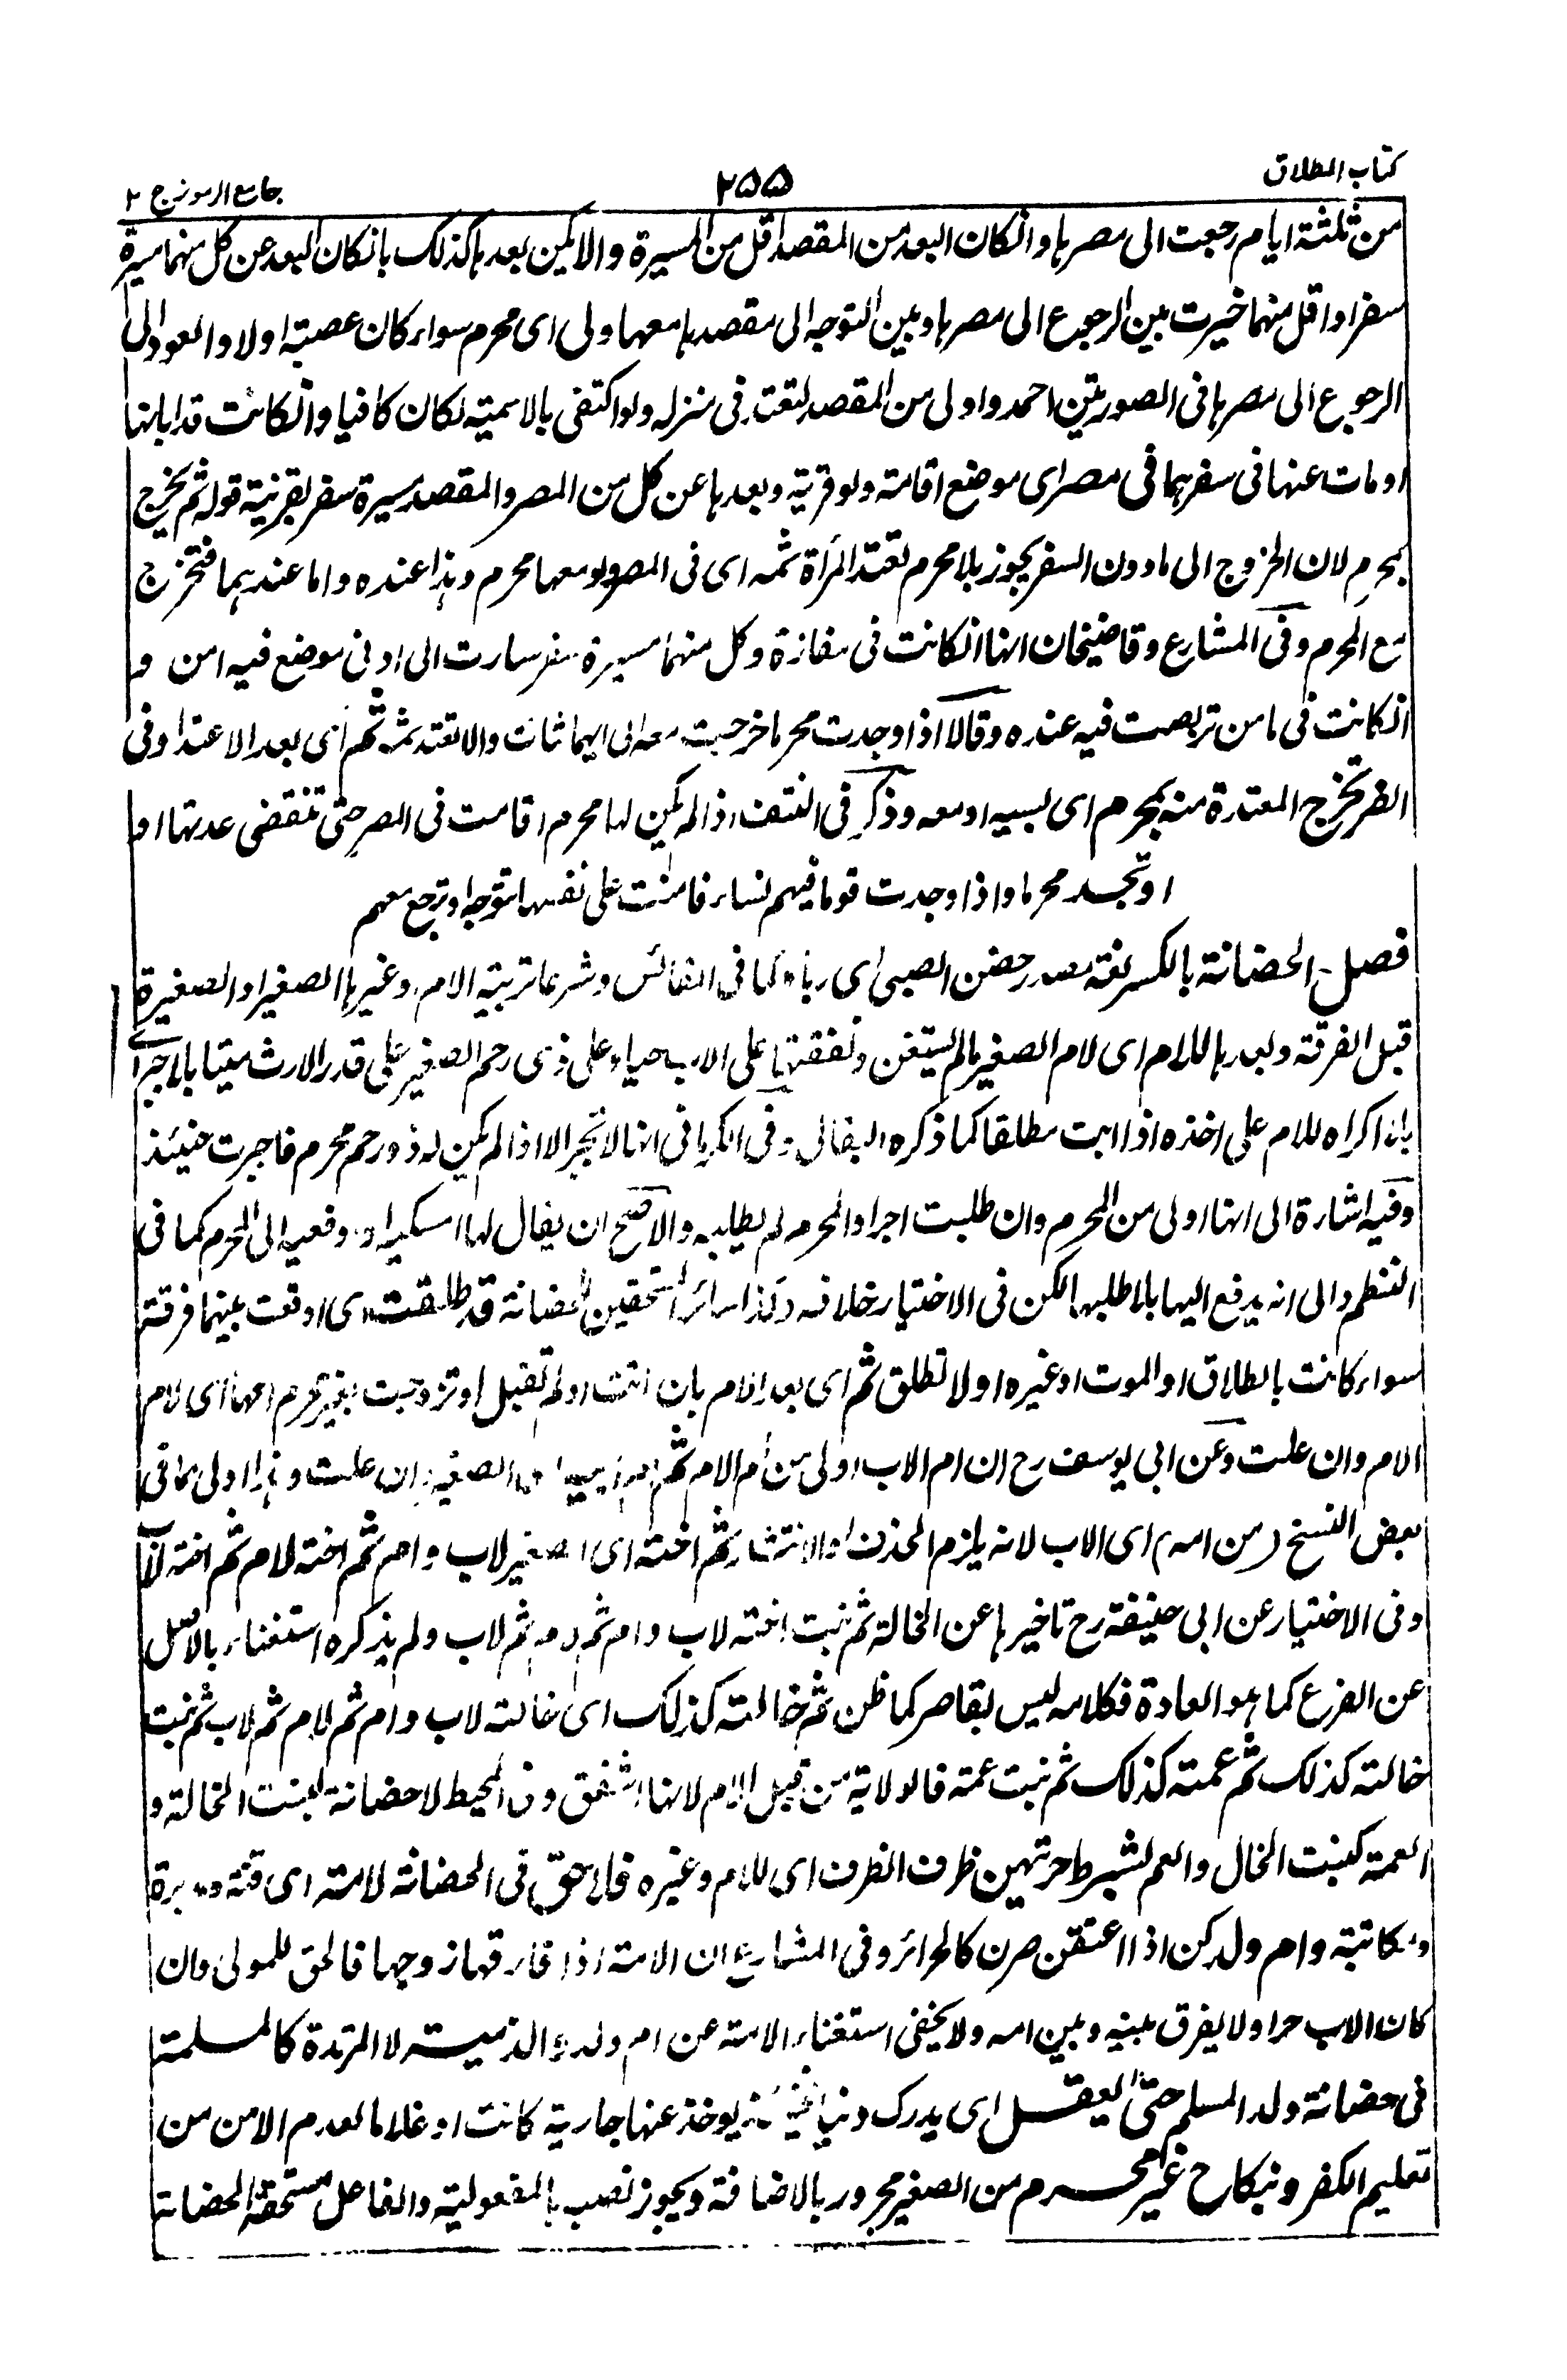 كتاب الطلاق
٢٥٥
جامع الرموز ج ٢
من ثلثة ايام رجعت الى مصرها وانكان البعد من المقصد اقل من المسيرة والا يكن بعدها كذلك بانكان البعد عن كل منهما مسيرة
سفر او اقل منهما خيرت بين الرجوع الى مصرها وبين التوجه الى مقصدها معها ولى اى محرم سواء كان عصبة اولا والعود الى
الرجوع الى مصرها فى الصورتين احمد واولى من المقصد لتعتد فى منزله ولو اكتفى بالاسمية لكان كافيا وانكانت قد ابانها
او مات عنها فى سفرهما فى مصر اى موضع اقامته ولو قرية وبعدها عن كل من المصر والمقصد مسيرة سفر بقرينة قوله ثم يخرج
بمحرم لان الخروج الى مادون السفر يجوز بلا محرم تعتد المرأة ثمه اى فى المصر ولو معها محرم وهذا عنده واما عندهما فتخرج
مع المحرم وفى المشارع وقاضيخان انها انكانت فى مفازة وكل منهما مسيرة سفر سارت الى ادنى موضع فيه امن و
انكانت فى مامن تربصت فيه عنده وقالا اذا وجدت محرما خرجت معه الى ايهما شاءت والا تعتد ثمه ثم اى بعد الاعتداد فى
المصر تخرج المعتدة منه بمحرم اى بسببه او معه وذكر فى النتف اذا لم يكن لها محرم اقامت فى المصر حتى تنقضى عدتها او
او تجد محرما واذا وجدت قوما فيهم نساء فامنت على نفسها تتوجه او ترجع معهم
فصل الحضانة بالكسر لغة مصدر حضن الصبى اى رباه كما فى النفائس وشرعا تربية الام وغيرها الصغير او الصغيرة
قبل الفرقة وبعدها للام اى لام الصغير مالم يستغن ونفقتها على الاب حيا وعلى ذى رحم الصغير على قدر الارث ميتا بلا جبر
بان اكراه للام على اخذه اذا ابت مطلقا كما ذكره البقالى وفى الكرمانى انها لا تجبر الا اذا لم يكن له ذو رحم محرم فاجبرت حينئذ
وفيه اشارة الى انها اولى من المحرم وان طلبت اجرا والمحرم لم يطلبه والاصح ان يقال لها امسكيه او دفعيه الى المحرم كما فى
النظم والى انه يدفع اليها بلا طلبها لكن فى الاختيار خلافه وكذا سائر المستحقين للحضانة قد طلقت اى اوقعت بينهما فرقة
سواء كانت بالطلاق او الموت او غيره اولا تطلق ثم اى بعد الام بان ماتت او لم تقبل او تزوجت بغير محرم امها اى لام
الام وان علت وعن ابى يوسف رح ان ام الاب اولى من ام الام ثم الصغير وان علت وهذا اولى مما فى
بعض النسخ (من امه) اى الاب لانه يلزم الحذف او الانتشار ثم اخته اى الصغير لاب وام ثم اخته لام ثم اخته لاب
وفى الاختيار عن ابى حنيفة رح تاخيرها عن الخالة ثم بنت اخته لاب وام ثم لام ثم لاب ولم يذكره استغناء بالاصل
عن الفرع كما هو العادة فكلامه ليس بقاصر كما ظن ثم خالته كذلك اى خالته لاب وام ثم لام ثم لاب ثم بنت
خالته كذلك ثم عمته كذلك ثم بنت عمة فالولاية من قبل الام لانها اشفق وفى المحيط لا حضانة لبنت الخالة و
العمة كبنت الخال والعم بشرط حريتهن ظرف الظرف اى للام وغيره فلا حق فى الحضانة لامة اى قنة ومدبرة
ومكاتبة وام ولد لكن اذا اعتقن صرن كالحرائر وفى المشارع ان الامة اذا فارقها زوجها فالحق للمولى وان
كان الاب حرا ولا يفرق بينه وبين امه ولا يخفى استغناء الامة عن ام ولد والذمية لا المرتدة كالمسلمة
فى حضانة ولد المسلم حتى يعقل اى يدرك دينا يوخذ عنها جارية كانت او غلاما لعدم الامن من
تعليم الكفر وبنكاح غير محرم من الصغير مجرور بالاضافة ويجوز نصب بالمفعولية والفاعل مستحقة الحضانة